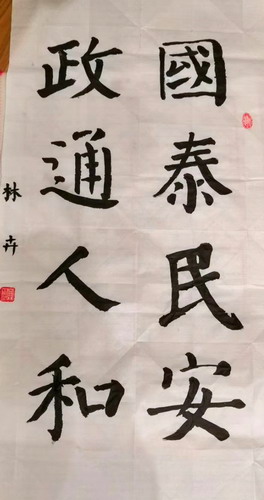 國泰民安
政通人和
林卉